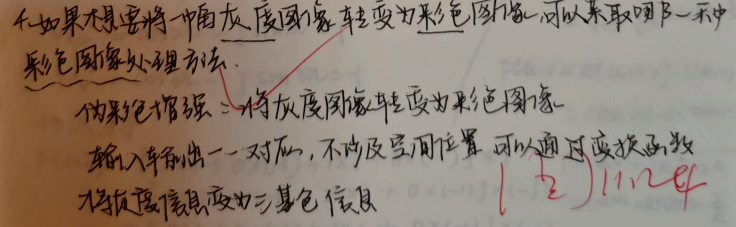 4.如果想要将一幅灰度图像转变为彩色图像,可以采取哪一种
彩色图像处理方法.
伪彩色增强:将灰度图像转变为彩色图像
输入输出一一对应,不涉及空间位置 可以通过变换函数
将灰度信息变为三基色信息